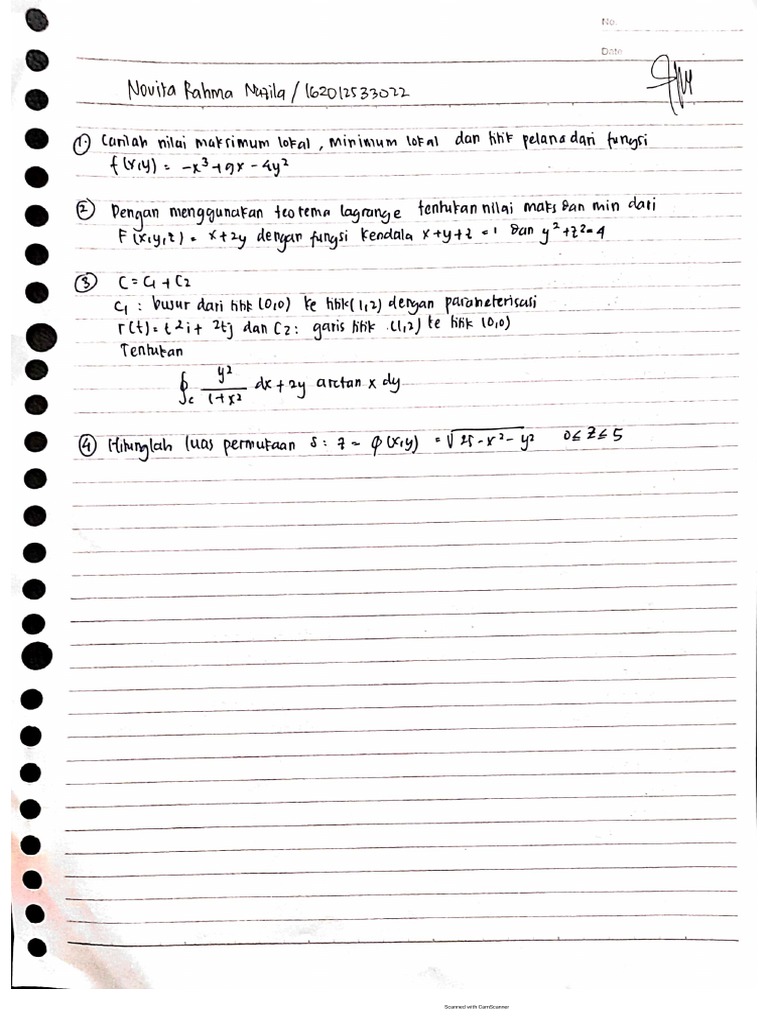 No.
Date
Novita Rahma Nuzila / 162012533022
① Carilah nilai maksimum lokal, minimum lokal dan titik pelana dari fungsi
f(x,y) = -x³ + 9x - 4y²
② Dengan menggunakan teotema lagrange tentukan nilai maks dan min dari
F(x,y,z) = x + 2y dengan fungsi kendala x+y+z = 1 dan y²+z²=4
③ C = C₁ + C₂
C₁ : busur dari titik (0,0) ke titik (1,2) dengan parameterisasi
r(t) = t²i + 2tj dan C₂ : garis titik (1,2) ke titik (0,0)
Tentukan
∮c y²/(1+x²) dx + 2y arctan x dy
④ Hitunglah luas permukaan S : z = φ(x,y) = √(25-x²-y²) 0≤z≤5
Scanned with CamScanner